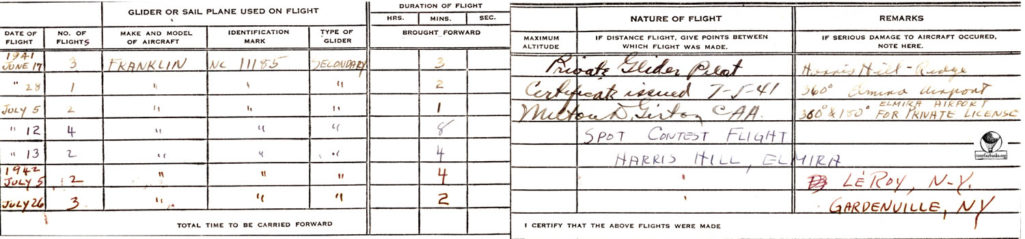 GLIDER OR SAIL PLANE USED ON FLIGHT DURATION OF FLIGHT
HRS. MINS. SEC.
DATE OF FLIGHT NO. OF FLIGHTS MAKE AND MODEL OF AIRCRAFT IDENTIFICATION MARK TYPE OF GLIDER BROUGHT FORWARD
1941
JUNE 17 3 FRANKLIN NC 11185 SECONDARY 3
" 28 1 " " " 2
JULY 5 2 " " " 1
" 12 4 " " " 8
" 13 2 " " " 4
1942
JULY 5 2 " " " 4
JULY 26 3 " " " 2
TOTAL TIME TO BE CARRIED FORWARD
NATURE OF FLIGHT REMARKS
MAXIMUM ALTITUDE IF DISTANCE FLIGHT, GIVE POINTS BETWEEN WHICH FLIGHT WAS MADE. IF SERIOUS DAMAGE TO AIRCRAFT OCCURED, NOTE HERE.
Private Glider Pilot Harris Hill - Ridge
Certificate issued 7-5-41 360° Elmira Airport
Milton D. Girton CAA. 360° & 180° ELMIRA AIRPORT FOR PRIVATE LICENSE
SPOT CONTEST FLIGHT
HARRIS HILL, ELMIRA
" LEROY, N-Y.
" GARDENVILLE, NY
I CERTIFY THAT THE ABOVE FLIGHTS WERE MADE